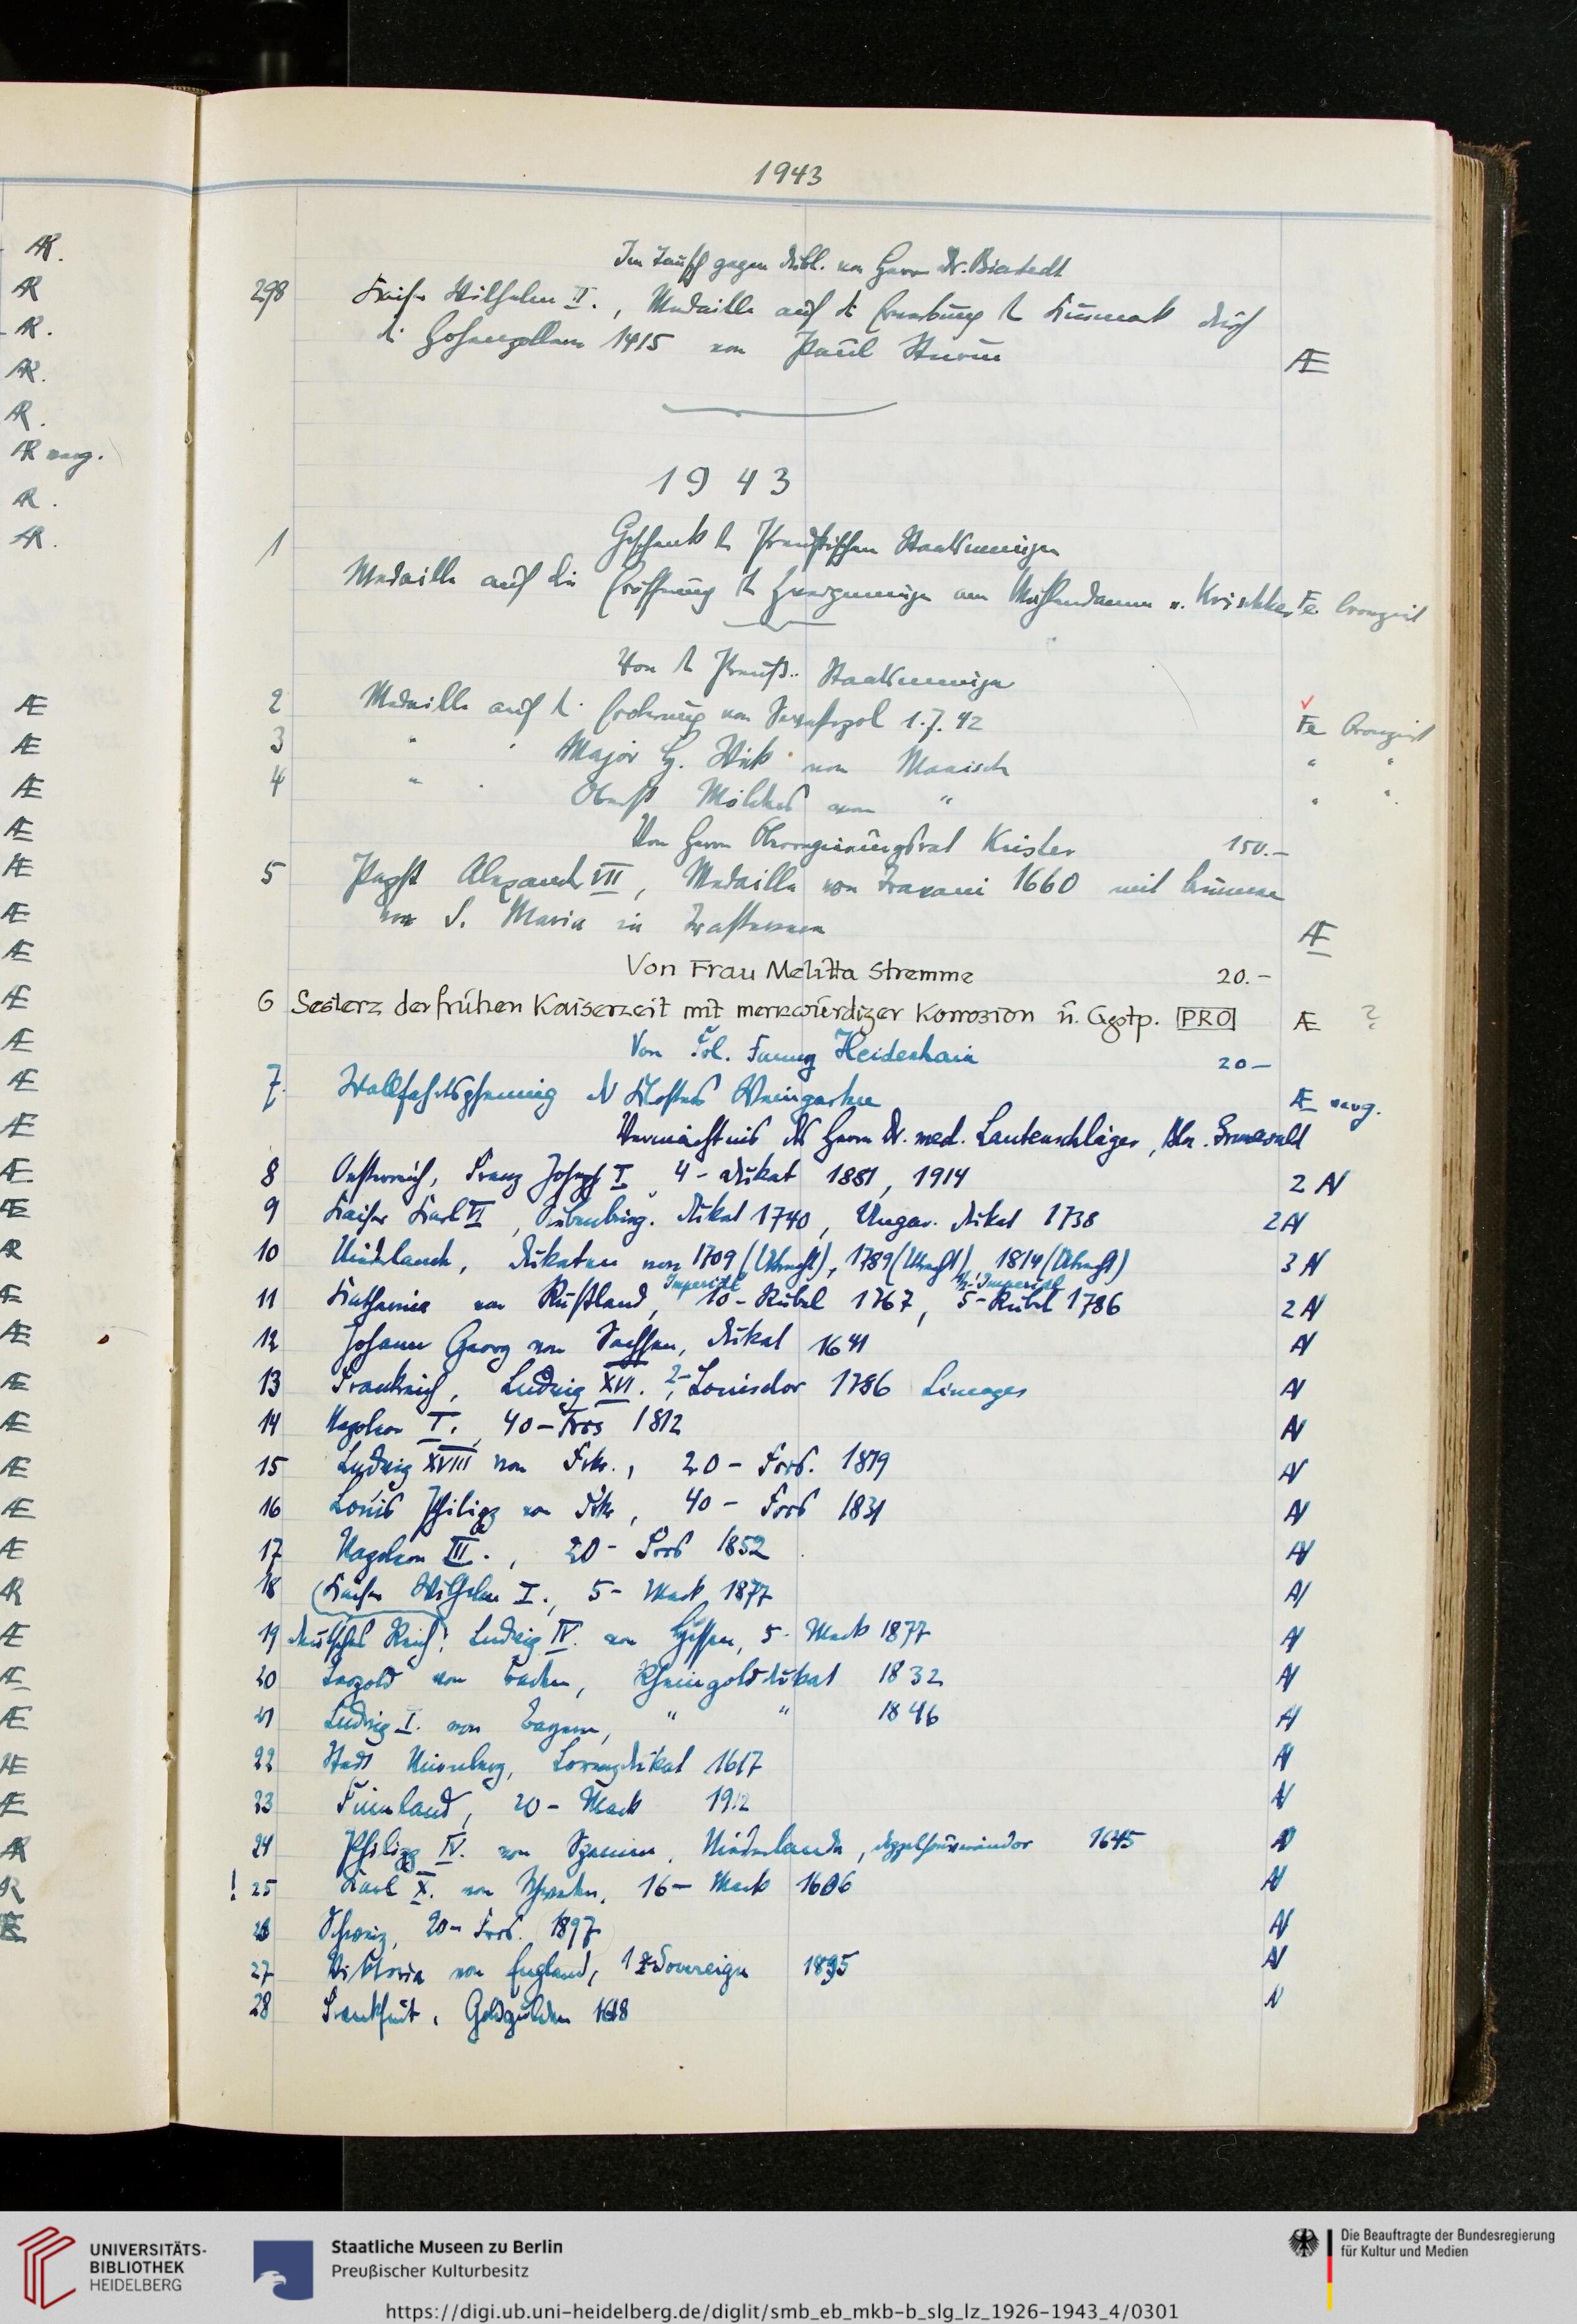 1943
AR.
AR
AR.
AR.
AR.
AR
AR.
AR.
AE
AE
AE
AE
AE
AE
AE
AE
AE
AE
AE
AE
AE
AR
AE
AE
AE
AE
AE
AE
AR
AE
AE
AE
AE
AE
AR
AR
Im Tausch gegen Dubl. von Herrn Dr.
298 Kaiser Wilhelm II., Medaille auf d. Erwerbung der Kurmark durch
d. Hohenzollern 1415 von Paul Sturm AE
1943
Geschenk der Preussischen Staatsmünze
1 Medaille auf die Eröffnung der am Mühlendamm v. Krischker Fe
Von der Preuß. Staatsmünze
2 Medaille auf d. Eroberung von Sewastopol 1.7.42 Fe
3 " " Major H. Wick von " "
4 " " Oberst Mölders von " " "
Von Herrn Oberregierungsrat Krister 150.—
5 Papst Alexander VII, Medaille von Travani 1660 mit
von S. Maria in AE
Von Frau Melitta Stremme 20.—
6 Sesterz der frühen Kaiserzeit mit merkwürdiger Korrosion ü. Ggstp. PRO AE ?
Von Frl. Fanny Heidenhain 20—
7. Wallfahrtspfennig des Klosters Weingarten AE
Vermächtnis des Herrn Dr. med. Lautenschläger, Bln. Grunewald
8 Oesterreich, Franz Joseph I, 4-Dukat 1881, 1914 2 AV
9 Kaiser Karl VI, Siebenbürg. Dukat 1740, Ungar. Dukat 1738 2 AV
10 Niederlande, Dukaten von 1709 (Utrecht), 1789 (Utrecht), 1814 (Utrecht) 3 AV
Imperial 1/2-Imperial
11 Katharina von Rußland, 10-Rubel 1767, 5-Rubel 1786 2 AV
12 Johann Georg von Sachsen, Dukat 1641 AV
13 Frankreich, Ludwig XVI., 2-Louisdor 1786 Limoges AV
14 Napoleon I., 40-Frcs 1812 AV
15 Ludwig XVIII von Frkr., 20-Frcs. 1819 AV
16 Louis Philipp von Frkr, 40-Frcs 1831 AV
17 Napoleon III., 20-Frcs 1852 AV
18 Kaiser Wilhelm I., 5-Mark 1877 AV
19 Deutsches Reich: Ludwig IV. von Hessen, 5-Mark 1877 AV
20 Leopold von Baden, Rheingolddukat 1832 AV
21 Ludwig I. von Bayern, " " 1846 AV
22 Stadt Nürnberg, 1617 AV
23 Finnland, 20-Mark 1912 AV
24 Philipp IV. von Spanien, Niederlande, 1645 AV
! 25 Karl X. von Schweden, 16-Mark 1606 AV
26 Schweiz, 20-Frcs. 1897 AV
27 Viktoria von England, Sovereign 1895 AV
28 Frankfurt, Goldgulden 1618 AV
UNIVERSITÄTS-
BIBLIOTHEK
HEIDELBERG
Staatliche Museen zu Berlin
Preußischer Kulturbesitz
Die Beauftragte der Bundesregierung
für Kultur und Medien
https://digi.ub.uni-heidelberg.de/diglit/smb_eb_mkb-b_slg_lz_1926-1943_4/0301